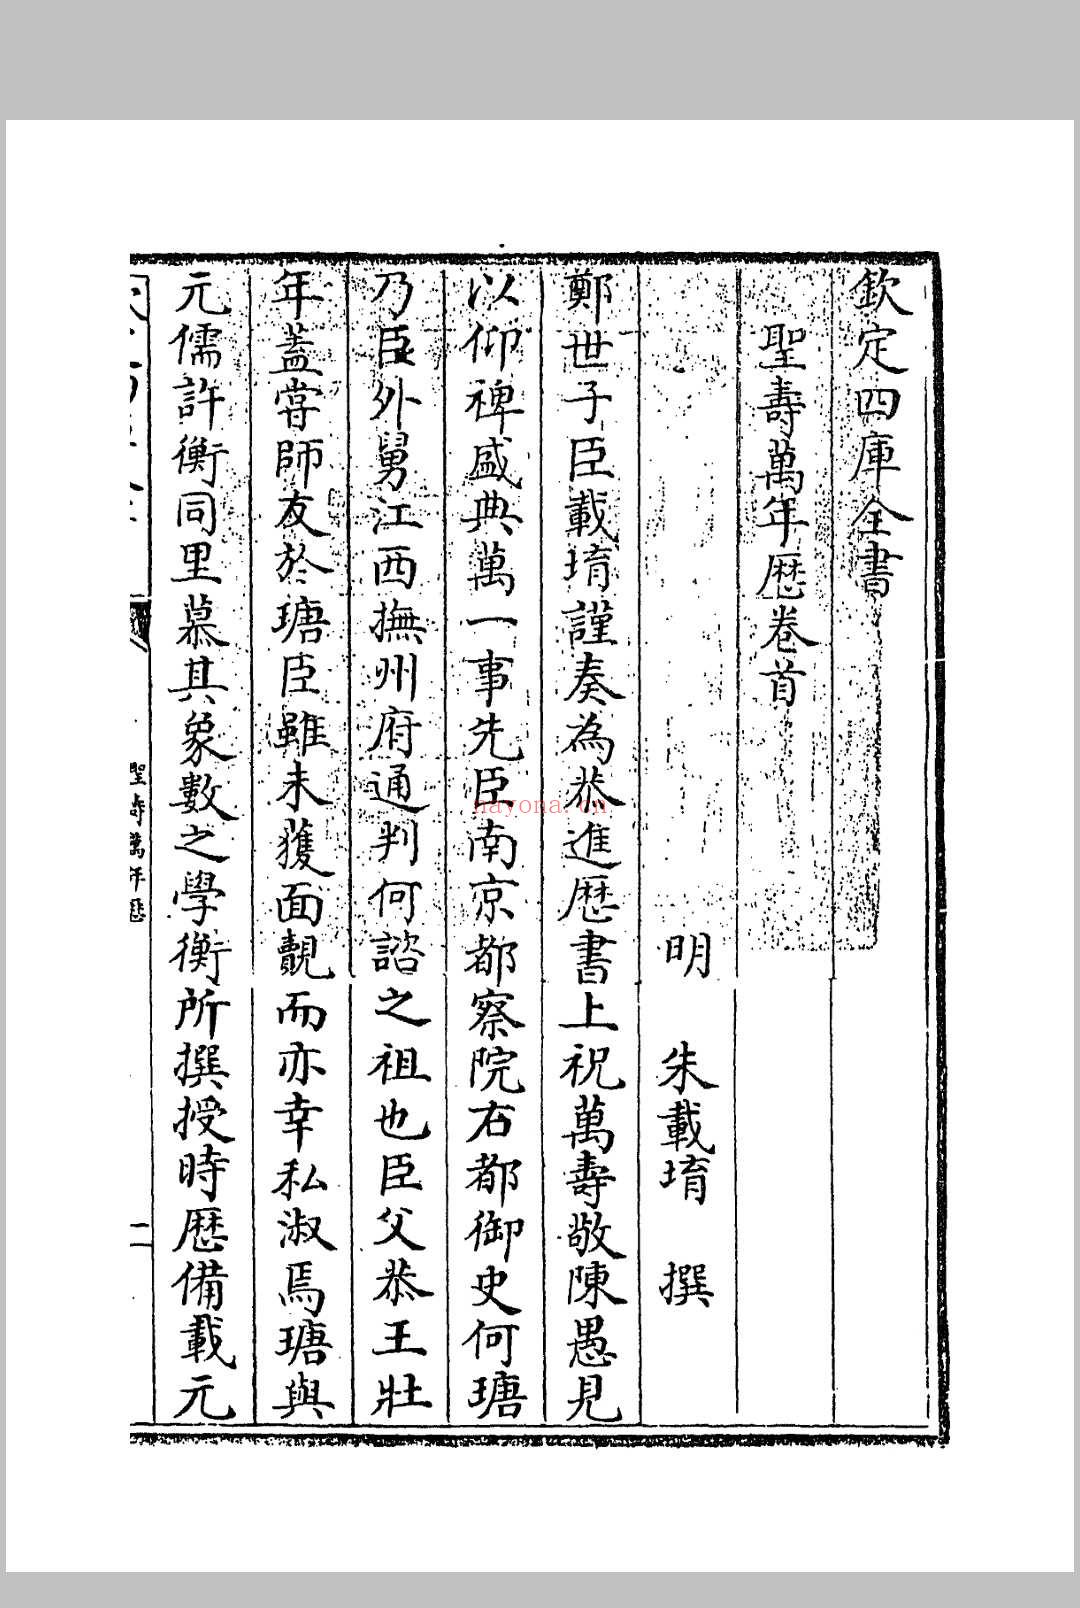 欽定四庫全書
聖壽萬年歴卷首
明 朱載堉 撰
鄭世子臣載堉謹奏為恭進歴書上祝萬壽敬陳愚見
以仰裨盛典萬一事先臣南京都察院右都御史何瑭
乃臣外舅江西撫州府通判何諮之祖也臣父恭王壯
年蓋嘗師友於瑭臣雖未獲面覿而亦幸私淑焉瑭與
元儒許衡同里慕其象數之學衡所撰授時歴備載元
聖壽萬年歴
一
nayona.cn